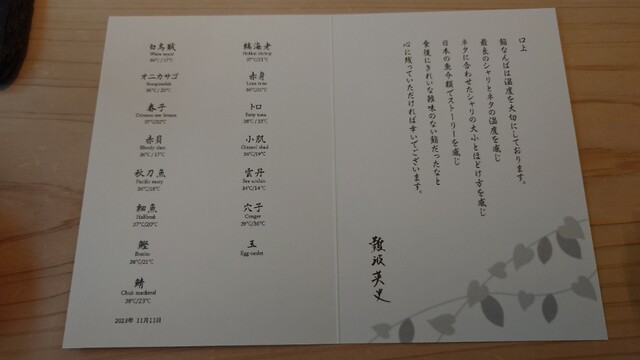 白烏賊
White squid
オニカサゴ
36°C/20°C
春子
Crimson sea bream
37°C/22°C
赤貝
Bloody clam
36°C/17°C
秋刀魚
Pacific saury
36°C/18°C
細魚
Halfbeak
37°C/20°C
鰹
Bonito
36°C/21°C
鯖
Chub mackerel
38°C/23°C
縞海老
37°C/21°C
赤身
Lean tuna
トロ
Fatty tuna
小肌
Gizzard shad
36°C/19°C
雲丹
Sea urchin
34°C/14°C
穴子
Conger
玉
Egg omlet
2023年 11月11日
口上
鮨なんばは温度を大切にしております。
最良のシャリとネタの温度を感じ
ネタに合わせたシャリの大小とほどけ方を感じ
日本の魚介類でストーリーを感じ
食後にきれいな雑味のない鮨だったなと
心に残っていただければ幸いでございます。
難波英史